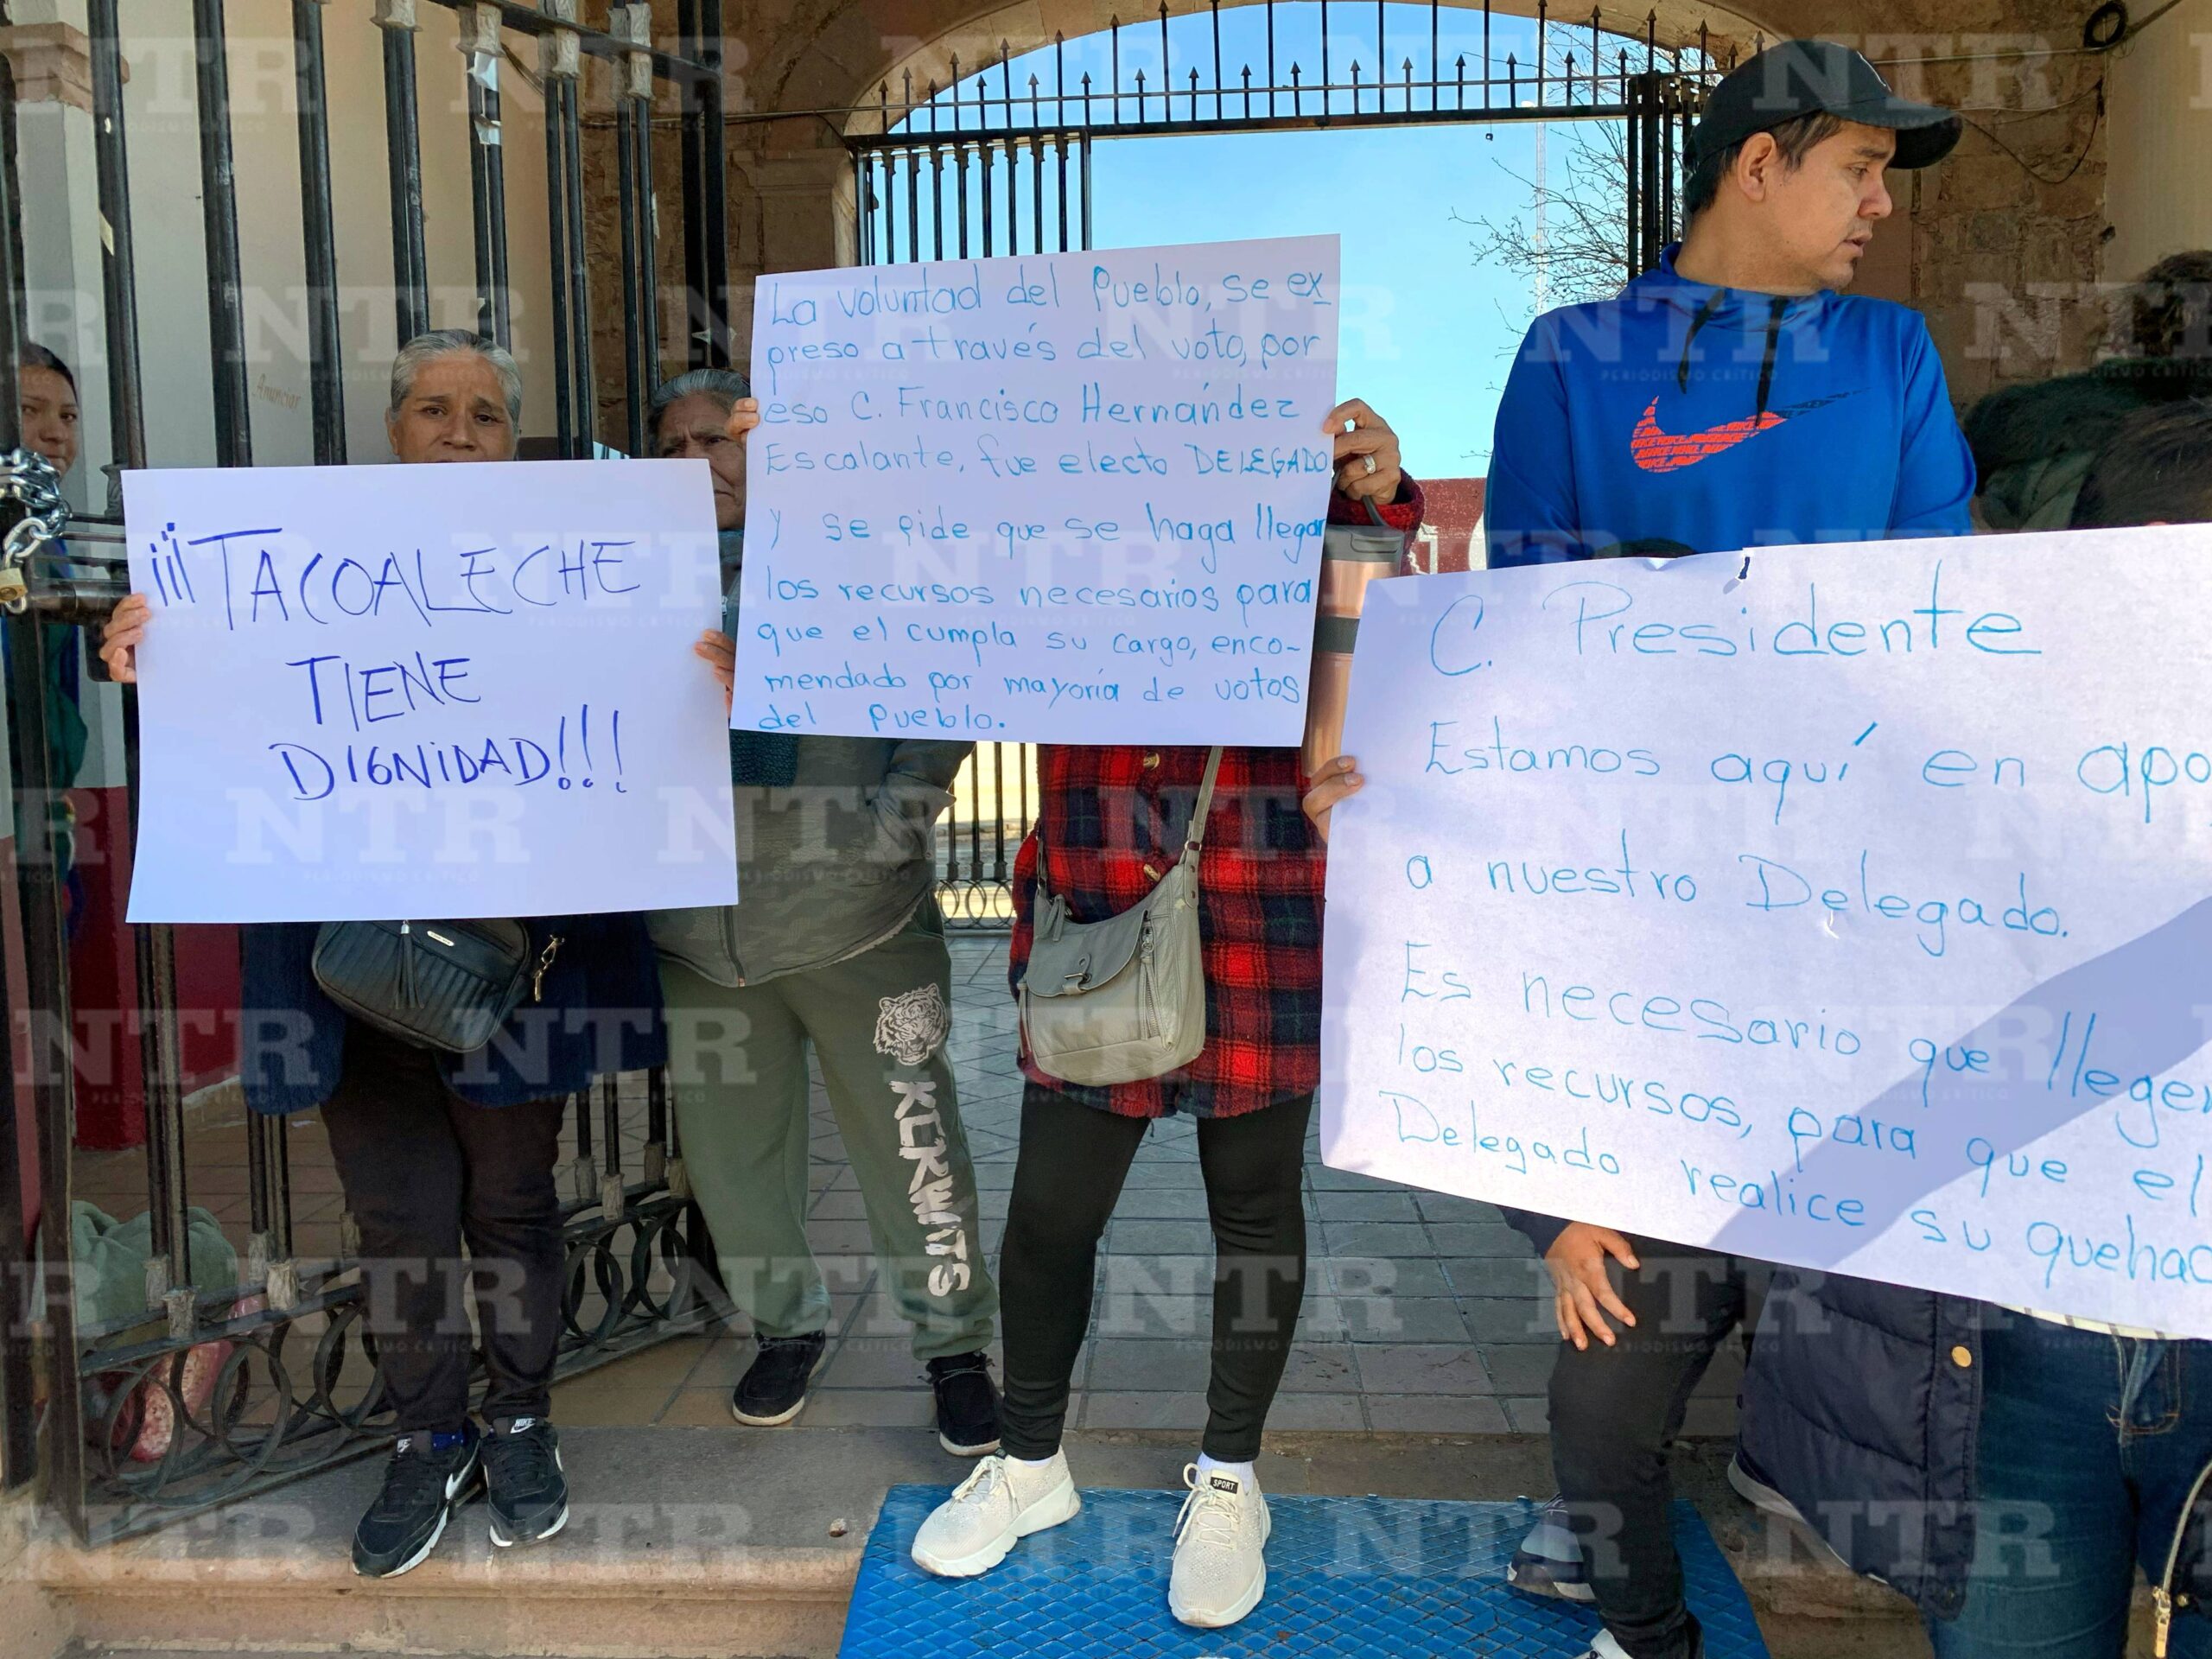 ¡¡¡TACOALECHE
TIENE
DIGNIDAD!!!
La voluntad del Pueblo, se ex
preso a través del voto, por
eso C. Francisco Hernández
Escalante, fue electo DELEGADO
y se pide que se haga llegar
los recursos necesarios para
que el cumpla su cargo, enco-
mendado por mayoría de votos
del Pueblo.
C. Presidente
Estamos aquí en apo
a nuestro Delegado.
Es necesario que llegen
los recursos, para que el
Delegado realice su quehac
Anunciar
NIKE
SPORT
NTR
PERIODISMO CRÍTICO